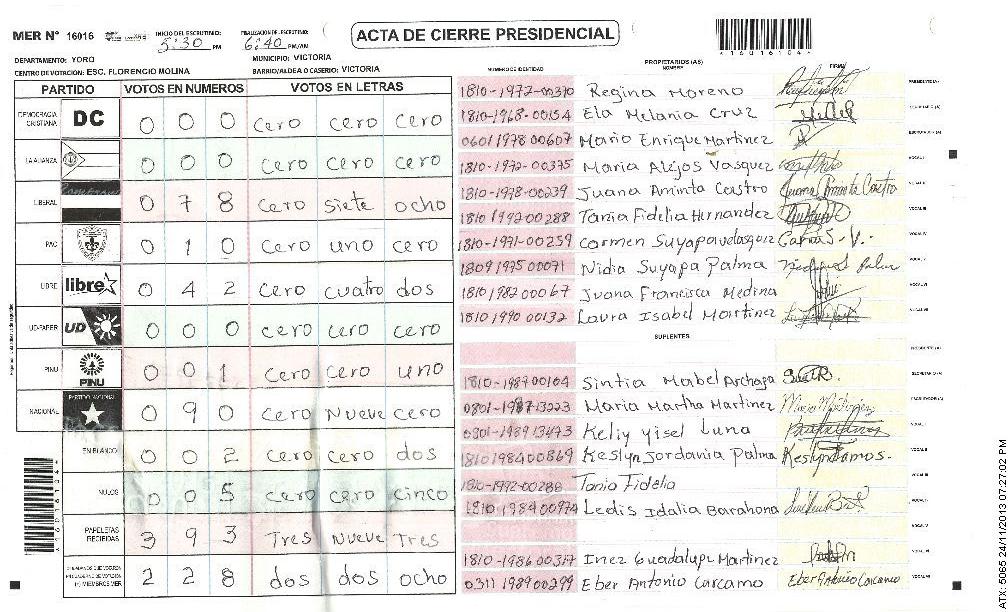 MER Nº 16016
INICIO DEL ESCRUTINIO:
5:30 PM
FINALIZACION DEL ESCRUTINIO:
6:40 PM/AM
ACTA DE CIERRE PRESIDENCIAL
4160161044
DEPARTAMENTO: YORO
MUNICIPIO: VICTORIA
CENTRO DE VOTACIÓN: ESC. FLORENCIO MOLINA
BARRIO/ALDEA O CASERIO: VICTORIA
PARTIDO VOTOS EN NUMEROS VOTOS EN LETRAS
DEMOCRACIA CRISTIANA DC 0 0 0 cero cero cero
LA ALIANZA 0 0 0 cero cero cero
LIBERAL 0 7 8 cero siete ocho
PAC 0 1 0 cero uno cero
LIBRE libre 0 4 2 cero cuatro dos
UD-FAPER UD 0 0 0 cero cero cero
PINU PINU 0 0 1 cero cero uno
NACIONAL PARTIDO NACIONAL 0 9 0 cero Nueve cero
EN BLANCO 0 0 2 cero cero dos
NULOS 0 0 5 cero cero cinco
PAPELETAS RECIBIDAS 3 9 3 Tres Nueve Tres
2 2 8 dos dos ocho
NUMERO DE IDENTIDAD
PROPIETARIOS (AS)
NOMBRE
FIRMA
1810-1972-00370 Regina Moreno
1810-1968-00154 Ela Melania Cruz
0601 1978 00607 Mario Enrique Martinez
1810-1972-00375 Maria Alejos Vasquez
1810-1978-00239 Juana Aminta Castro Juana Aminta Castro
1810 1992 00288 Tania Fidelia Hernandez
1810-1971-00259 Carmen Suyapa Velasquez
1809 1975 00071 Nidia Suyapa Palma
1810 1982 00067 Juana Francisca Medina
1810 1990 00132 Laura Isabel Martinez
SUPLENTES
1810-1989 00104 Sintia Mabel Archaga
0801-1987-13223 Maria Martha Martinez
0801-1989 13473 Keliy yisel Luna
1810 1984 00869 Keslyn Jordania Palma
1810-1992-00288 Tania Fidelia
1810-1984 00974 Ledis Idalia Barahona
1810-1986 00317 Inez Guadalupe Martinez
0311 1989 00299 Eber Antonio Carcamo Eber Antonio Carcamo
ATX-5065 24/11/2013 07:27:02 PM